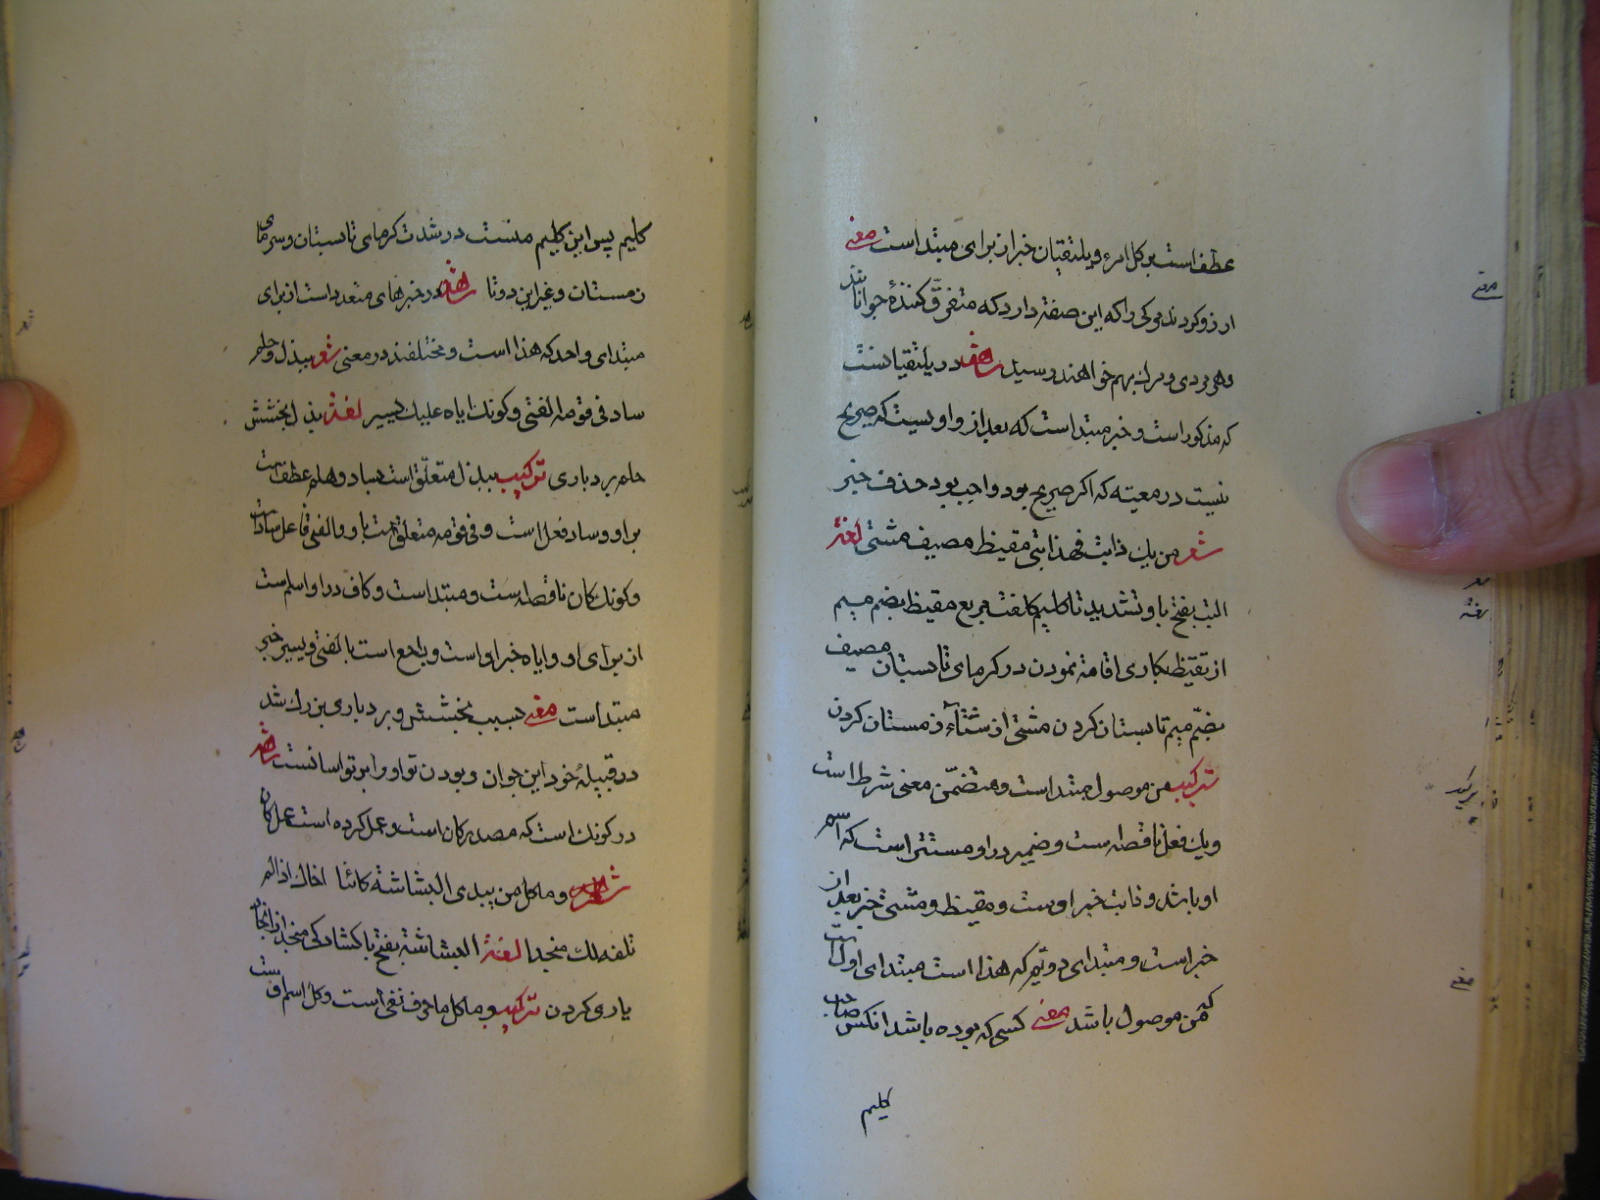 عطف است بر کل امرء ویلتقیان خبر از برای مبتداست معنی
ارزو کردند مرکی را که این صفة دارد که متفرّق کنندهٔ جوانانند
وهر مردی ومرك بهم خواهند رسید شاهد در یلتقیانست
که مذکور است وخبر مبتداست که بعد از واویست که صریح
نیست در معیته که اکر صریح بود واجب بود حذف خبر
شعر من یك ذابت فهذا بتی مقیظ مصیف مشتی لغة
البت بفتح با وتشدید تا کلیم کلفت مربع مقیظ بضم میم
از تقیظ بکاری اقامة نمودن در کرمای تابستان مصیف
بضمّ میم تابستان کردن مشتی از شتآء زمستان کردن
ترکیب من موصول مبتداست ومتضمّن معنی شرط است
ویك فعل ناقصه است وضمیر در او مستتر است که اسم
او باشد وذابت خبر اوست ومقیظ ومشتی خبر بعد از
خبر است ومبتدای دویّم که هذا است مبتدای اول است
که من موصول باشد معنی کسی که بوده باشد انکس صاحب
کلیم
کلیم پس این کلیم منست در شدت کرمای تابستان وسرمای
زمستان وغیر این دوتا شاهد در خبرهای متعدد است از برای
مبتدای واحد که هذا است ومختلفند در معنی شعر ببذل وحلم
ساد فی قومه الفتی وکونك ایاه علیك یسیر لغة بذل بخشش
حلم بردباری ترکیب ببذل متعلّق است بساد وحلم عطف است
بر او وساد فعل است وفی قومه متعلق است باو والفتی فاعل ساد است
وکونك کان ناقصه است ومبتداست وکاف در او اسم است
از برای او وایاه خبر اواست وراجع است بالفتی ویسیر خبر
مبتداست معنی حبیب بخشش وبردباری بزرك شد
در قبیلهٔ خود این جوان وبودن تو او را بر تو اسانست شاهد
در کونك است که مصدر کان است وعمل کرده است عمل کان
شعر وما کل من یبدی البشاشة کائنا اخاك اذا لم
تلفه لك منجدا لغة البشاشة بفتح با کشادکی منجد از انجاد
یاری کردن ترکیب وما کل ما حرف نفی است وکل اسم اوست